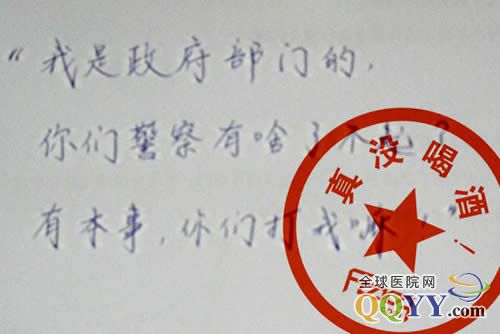 “我是政府部门的，
你们警察有啥了不起？
有本事，你们打我嘛！”
真没喝酒！
全球医院网
QQYY.com